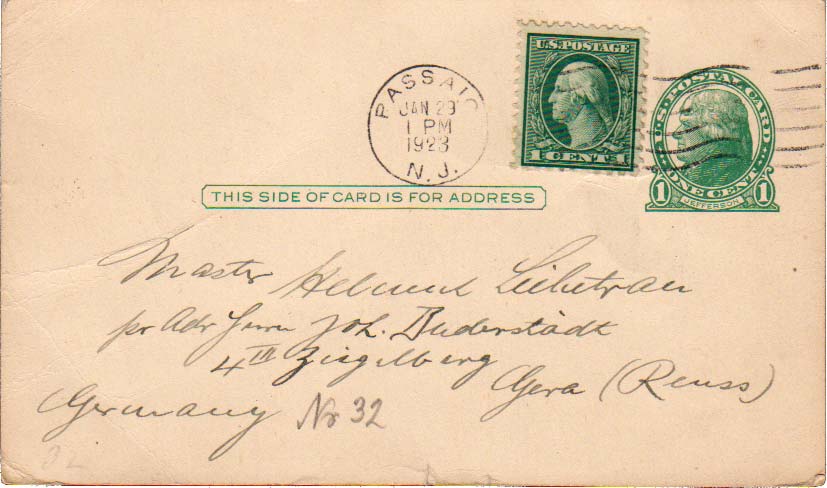 U.S. POSTAGE
1 CENT 1
PASSAIC
JAN 29
1 PM
1923
N. J.
U.S. POSTAL CARD
1 ONE CENT 1
JEFFERSON
THIS SIDE OF CARD IS FOR ADDRESS
Master Helmut Liebetrau
pr Adr Herrn Joh. Buderstädt
4 III Ziegelberg
Gera (Reuss)
Germany Nr 32